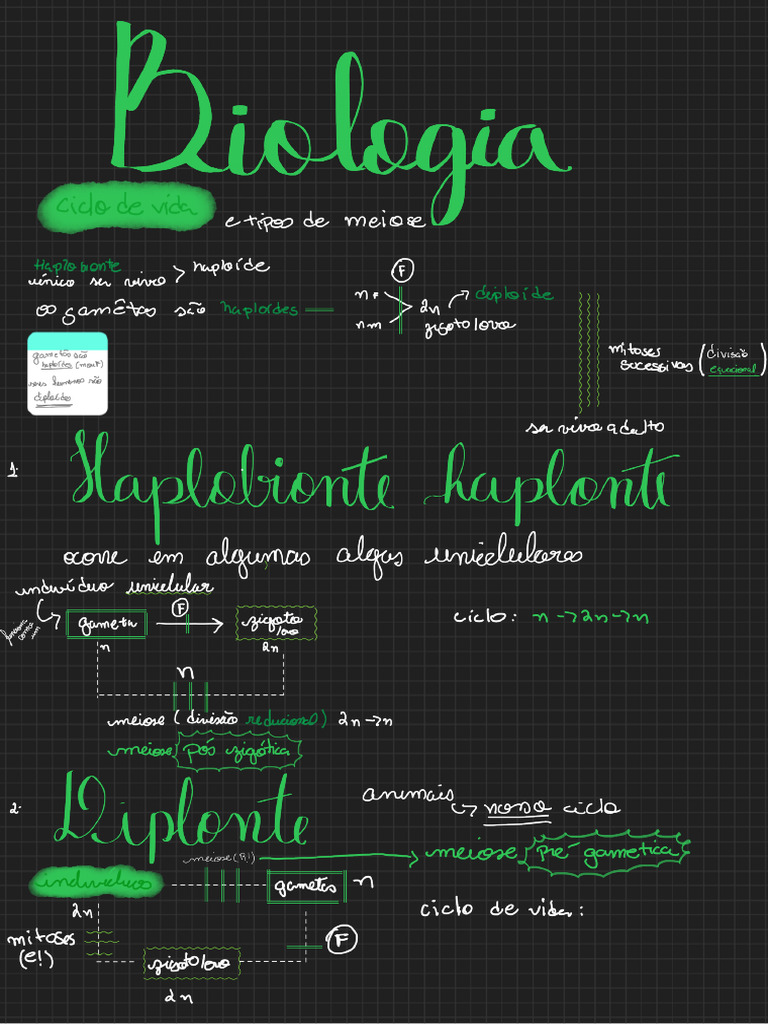 Biologia
ciclo de vida
e tipos de meiose
Haplobionte
único ser vivo > haploíde
os gamêtas são haploídes
n F
n m
F
2n → diploíde
zigoto/ovo
mitoses
sucessivas (divisão
equacional)
ser vivo adulto
gametas são
haploídes (mout)
seres humanos são
diploídes
1. Haplobionte haplonte
ocorre em algumas algas unicelulares
indivíduo unicelular
gameta
F
zigoto
/ovo
n
2n
n
ciclo: n → 2n → n
meiose (divisão reducional) 2n → n
meiose pós zigótica
2. Diplonte
animais
→ nosso ciclo
meiose (R!)
meiose pré-gametica
indivíduo
gametas
n
ciclo de vida:
2n
mitoses
(E!)
F
zigoto/ovo
2n